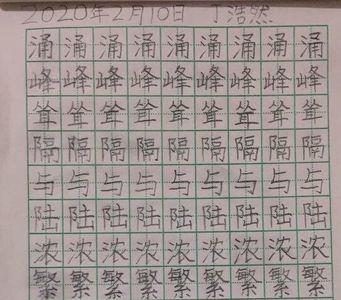 2020年2月10日 丁浩然
涌涌涌涌涌涌涌涌涌
峰峰峰峰峰峰峰峰峰
耸耸耸耸耸耸耸耸耸
隔隔隔隔隔隔隔隔隔
与与与与与与与与与
陆陆陆陆陆陆陆陆陆
浓浓浓浓浓浓浓浓浓
繁繁繁繁繁繁繁繁繁